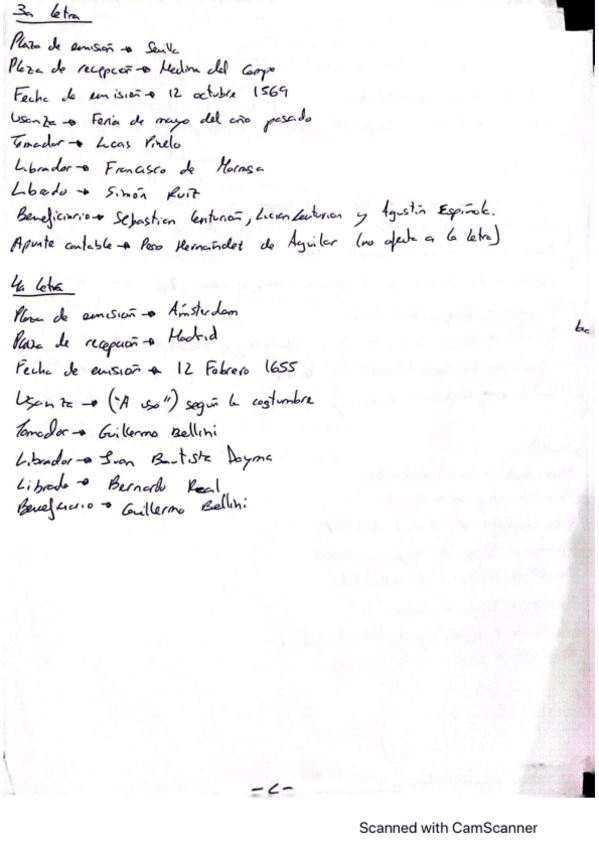 3a Letra
Plaza de emisión → Sevilla
Plaza de recepción → Medina del Campo
Fecha de emisión → 12 octubre 1569
Usanza → Feria de mayo del año pasado
Tomador → Lucas Pinelo
Librador → Francisco de
Librado → Simón Ruiz
Beneficiario → Sebastian Centurión, Lician Centurion y Agustín Espínola.
Apunte contable → Pero Hernández de Aguilar (no afecta a la letra)
4a letra
Plaza de emisión → Ámsterdam
Plaza de recepción → Madrid
Fecha de emisión → 12 Febrero 1655
Usanza → ("A uso") según la costumbre
Tomador → Guillermo Bellini
Librador → Juan Bautista Dayma
Librado → Bernardo Real
Beneficiario → Guillermo Bellini
Scanned with CamScanner